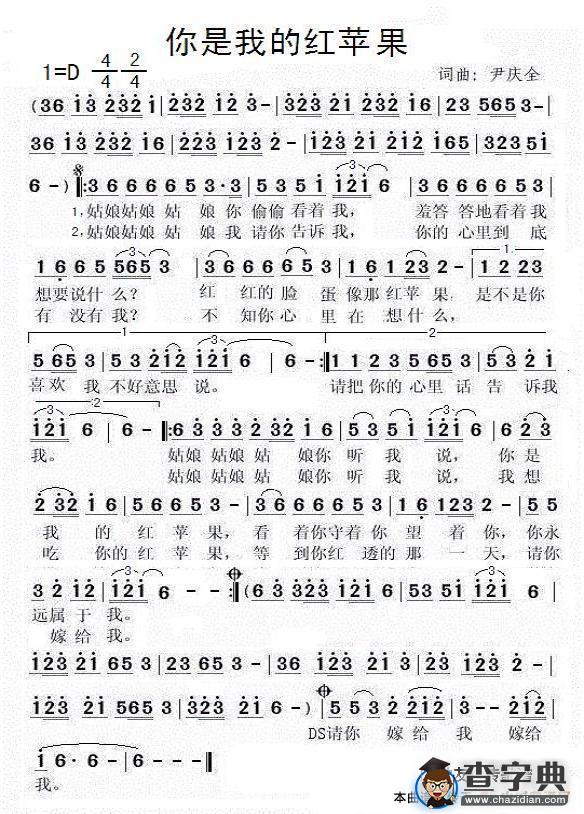 你是我的红苹果
1=D 4/4 2/4
词曲: 尹庆全
(36 13 2321 | 232 12 3- | 323 21 232 16 | 23 565 3- |
36 13 2321 | 232 16 223 123 2- | 123 21 212 165 | 323 51
6-) ‖: 36 66 65 3·3 | 53 51 121 6 | 36 66 65 3
1,姑娘姑娘 姑 娘 你 偷偷 看着 我, 羞答 答地看着 我
2,姑娘姑娘 姑 娘 我 请你 告诉 我, 你的 心里到 底
16 65 565 3 | 36 66 65 61 | 16 1 23 2- | 12 23
想要说什么? 红 红的 脸 蛋 像那 红苹 果, 是不是你
有 没有 我? 不 知你 心 里 在 想什 么,
5653 | 53 212 121 6 | 6- :‖ 11 23 565 3 | 53 21
喜欢 我 不好意思 说。 请把 你的 心里 话 告 诉我
121 6 | 6- ‖: 63 33 32 16 | 53 51 121 63 | 6 23
我。 姑娘 姑娘 姑 娘你 听 我 说, 你 是
姑娘 姑娘 姑 娘你 听 我 说, 我 想
2 32 1 65 | 56 65 3 | 36 66 65 3 | 16 123 2- | 55
我 的 红 苹果, 看 着你守着 你 望 着 你, 你永
吃 你的 红 苹果, 等 到你红 透的 那 一 天, 请你
3 2 12 | 121 6 | 6- :‖ (63 323 216 | 53 51 121 6 |
远属 于 我。
嫁 给 我。
123 21 65 | 323 565 3 | 36 123 21 | 232 216 |
123 21 232 21 | 535 323 21 6 | 6-) ‖ 55 3 2 212 | 3 2
DS请你 嫁 给 我 嫁给
1 6·6· | 6- ‖
我。
查字典
www.chazidian.com